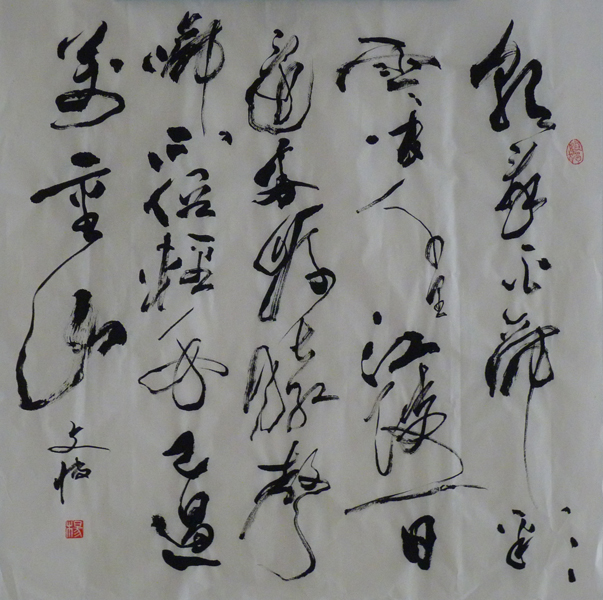 朝辞白帝彩
雲间千里江陵一日
還两岸猿聲
啼不住輕舟已過
萬重山
文